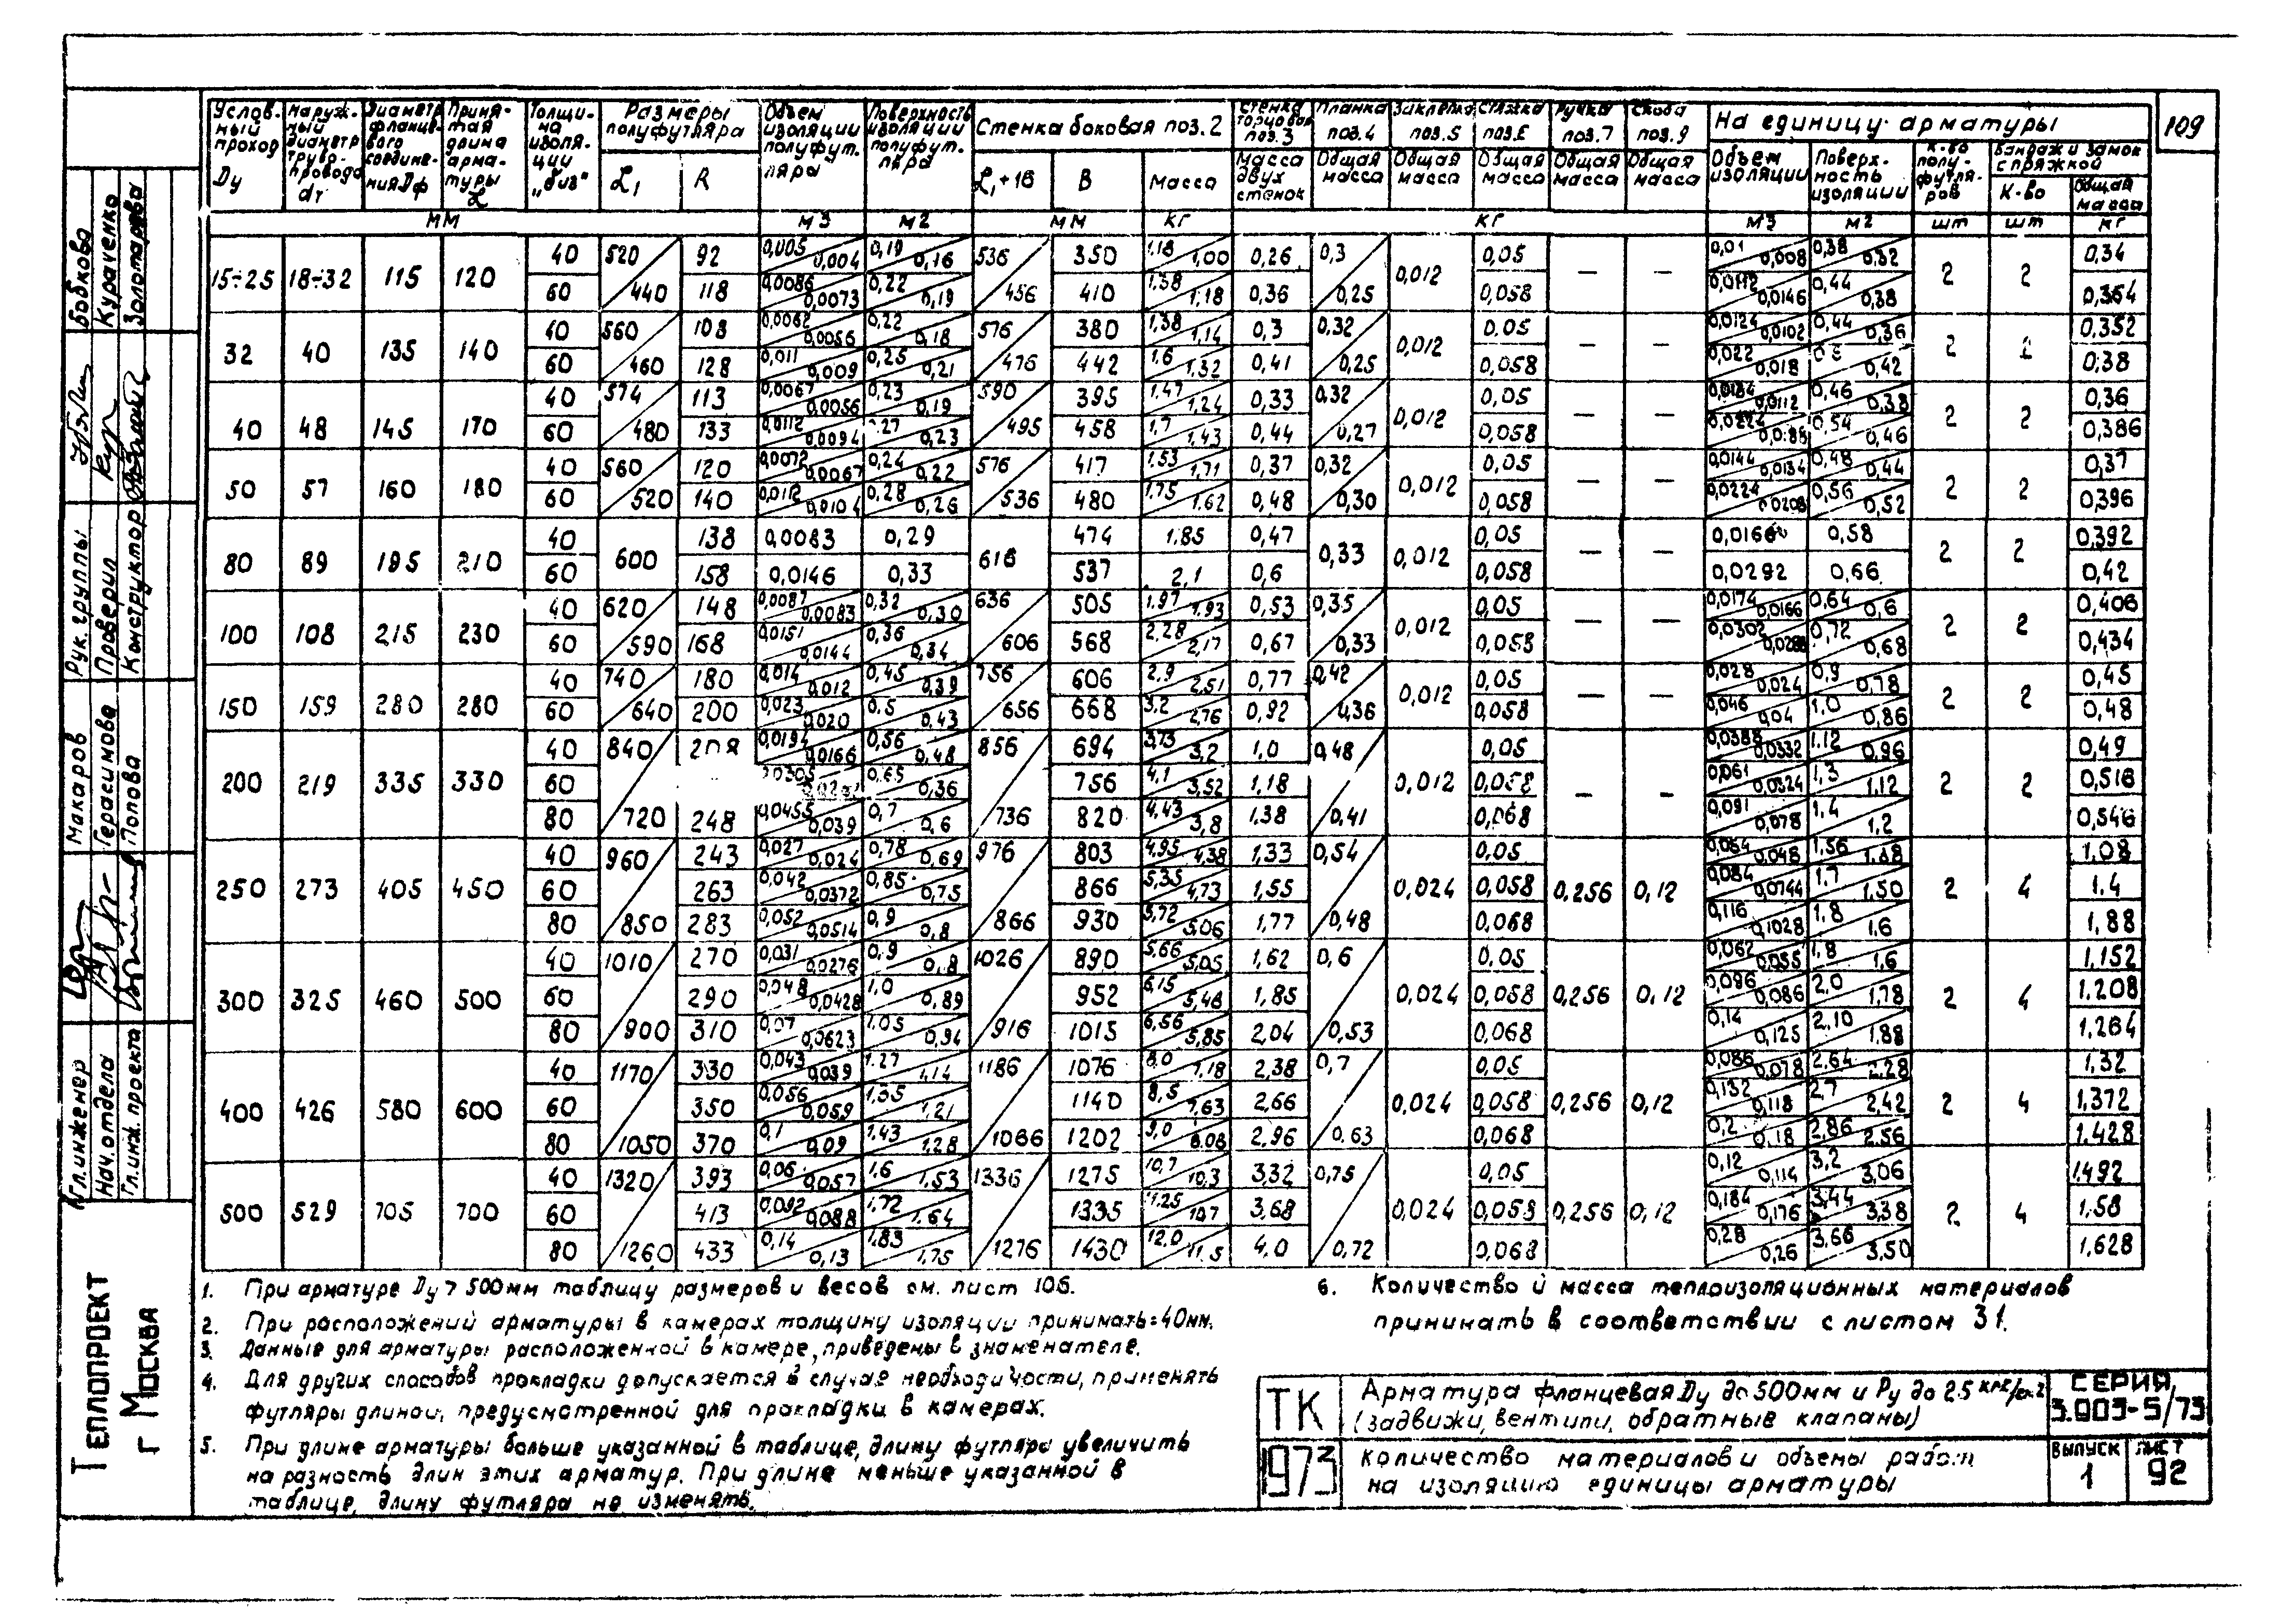 109
Услов-ный проход Dу | Наруж-ный диаметр трубо-провода dт | Диаметр фланце-вого соедине-ния Dф | Приня-тая длина арма-туры L | Толщи-на изоля-ции „δиз" | Размеры полуфутляра L1 | R | Объем изоляции полуфут-ляра | Поверхность изоляции полуфут-ляра | Стенка боковая поз.2 L1+16 | В | Масса | Стенка торцовая поз.3 Масса двух стенок | Планка поз.4 Общая масса | Заклепка поз.5 Общая масса | Стяжка поз.6 Общая масса | Ручка поз.7 Общая масса | Скоба поз.9 Общая масса | На единицу арматуры Объем изоляции | Поверх-ность изоляции | К-во полу-футля-ров | Бандаж и замок с пряжкой К-во | Общая масса
мм | м3 | м2 | мм | кг | кг | м3 | м2 | шт | шт | кг
15÷25 18÷32 115 120 40 520/440 92 0,005/0,004 0,19/0,16 536/456 350 1,18/1,00 0,26 0,3/0,25 0,012 0,05 — — 0,01/0,008 0,38/0,32 2 2 0,34
60 118 0,0086/0,0073 0,22/0,19 410 1,38/1,18 0,36 0,058 0,0146 0,44/0,38 0,364
32 40 135 140 40 560/460 108 0,0062/0,0056 0,22/0,18 576/476 380 1,38/1,14 0,3 0,32/0,25 0,012 0,05 — — 0,0124/0,0102 0,44/0,36 2 2 0,352
60 128 0,011/0,009 0,25/0,21 442 1,6/1,32 0,41 0,058 0,022/0,018 0,42 0,38
40 48 145 170 40 574/480 113 0,0067/0,0056 0,23/0,19 590/495 395 1,47/1,24 0,33 0,32/0,27 0,012 0,05 — — 0,0134/0,0112 0,46/0,38 2 2 0,36
60 133 0,0112/0,0094 0,23 458 1,7/1,43 0,44 0,058 0,0224 0,54/0,46 0,386
50 57 160 180 40 560/520 120 0,0072/0,0067 0,24/0,22 576/536 417 1,53/1,71 0,37 0,32/0,30 0,012 0,05 — — 0,0144/0,0134 0,48/0,44 2 2 0,37
60 140 0,0104 0,28/0,26 480 1,75/1.62 0,48 0,058 0,0224/0,0208 0,56/0,52 0,396
80 89 195 210 40 600 138 0,0083 0,29 616 474 1.85 0,47 0,33 0,012 0,05 — — 0,0166 0,58 2 2 0,392
60 158 0,0146 0,33 537 2,1 0,6 0,058 0,0292 0,66 0,42
100 108 215 230 40 620/590 148 0,0087/0,0083 0,32/0,30 636/606 505 1,97/1.93 0,53 0,35/0,33 0,012 0,05 — — 0,0174/0,0166 0,64/0,6 2 2 0,406
60 168 0,0151/0,0144 0,36/0,34 568 2,28/2,17 0,67 0,058 0,0302/0,0288 0,72/0,68 0,434
150 159 280 280 40 740/640 180 0,014/0,012 0,45/0,39 756/656 606 2,9/2,51 0,77 0,42/0,36 0,012 0,05 — — 0,028/0,024 0,9/0,78 2 2 0,45
60 200 0,023/0,020 0,5/0,43 668 3,2/2,76 0,92 0,058 0,046/0,04 1,0/0,86 0,48
200 219 335 330 40 840/720 208 0,0194/0,0166 0,56/0,48 856/736 694 3,73/3,2 1,0 0,48/0,41 0,012 0,05 — — 0,0388/0,0332 1,12/0,96 2 2 0,49
60 0,0305 0,65/0,36 756 4,1/3,52 1,18 0,058 0,061/0,0324 1,3/1,12 0,516
80 248 0,0455/0,039 0,7/0,6 820 4,43/3,8 1,38 0,068 0,091/0,078 1,4/1,2 0,546
250 273 405 450 40 960/850 243 0,027/0,024 0,78/0,69 976/866 803 4,95/4,38 1,33 0,54/0,48 0,024 0,05 0,256 0,12 0,054/0,048 1,56/1.38 2 4 1.08
60 263 0,042/0,0372 0,85/0,75 866 5,35/4,73 1,55 0,058 0,084/0,0744 1,7/1.50 1.4
80 283 0,052/0,0514 0,9/0,8 930 5,72/5,06 1,77 0,068 0,116/0,1028 1,8/1,6 1,88
300 325 460 500 40 1010/900 270 0,031/0,0276 0,9/0,8 1026/916 890 5,66/5,05 1,62 0,6/0,53 0,024 0,05 0,256 0,12 0,062/0,055 1,8/1,6 2 4 1,152
60 290 0,048/0,0428 1,0/0,89 952 6,15/5,46 1,85 0,058 0,096/0,086 2,0/1,78 1.208
80 310 0,07/0,0623 1,05/0,94 1015 6,56/5,85 2,04 0,068 0,14/0,125 2,10/1.88 1,264
400 426 580 600 40 1170/1050 330 0,043/0,039 1.27/1,14 1186/1066 1076 8,0/7,18 2,38 0,7/0,63 0,024 0,05 0,256 0,12 0,086/0,078 2,64/2.28 2 4 1,32
60 350 0,056/0,059 1,35/1,21 1140 8,5/7,63 2,66 0,058 0,132/0,118 2,7/2,42 1,372
80 370 0,1/0,09 1,43/1,28 1202 9,0/8.08 2,96 0,068 0,2/0,18 2,86/2.56 1.428
500 529 705 700 40 1320/1260 393 0,06/0,057 1,6/1,53 1336/1276 1275 10,7/10,3 3,32 0,75/0,72 0,024 0,05 0,256 0,12 0,12/0,114 3,2/3,06 2 4 1,492
60 413 0,092/0,088 1,72/1,64 1335 11,25/10,7 3,68 0,058 0,184/0,176 3,44/3,38 1,58
80 433 0,14/0,13 1,83/1,75 1430 12,0/11,5 4,0 0,068 0,28/0,26 3,66/3,50 1,628
1. При арматуре Dу > 500мм таблицу размеров и весов см. лист 106.
2. При расположений арматуры в камерах толщину изоляции принимать=40мм.
3. Данные для арматуры расположенной в камере, приведены в знаменателе.
4. Для других способов прокладки допускается в случае необходимости, применять
футляры длиной, предусмотренной для прокладки в камерах.
5. При длине арматуры больше указанной в таблице, длину футляра увеличить
на разность длин этих арматур. При длине меньше указанной в
таблице, длину футляра не изменять.
6. Количество и масса теплоизоляционных материалов
принимать в соответствии с листом 31.
ТК
1973
Арматура фланцевая Dу до 500мм и Ру до 2.5 кгс/см2
(задвижи, вентили, обратные клапаны)
Количество материалов и объемы работ
на изоляцию единицы арматуры
СЕРИЯ
3.903-5/73
ВЫПУСК
1
ЛИСТ
92
Бобкова
Кураченко
Золотарева
Рук. группы
Проверил
Конструктор
Макаров
Герасимова
Попова
Гл.инженер
Нач.отдела
Гл.инж. проекта
ТЕПЛОПРОЕКТ
г Москва